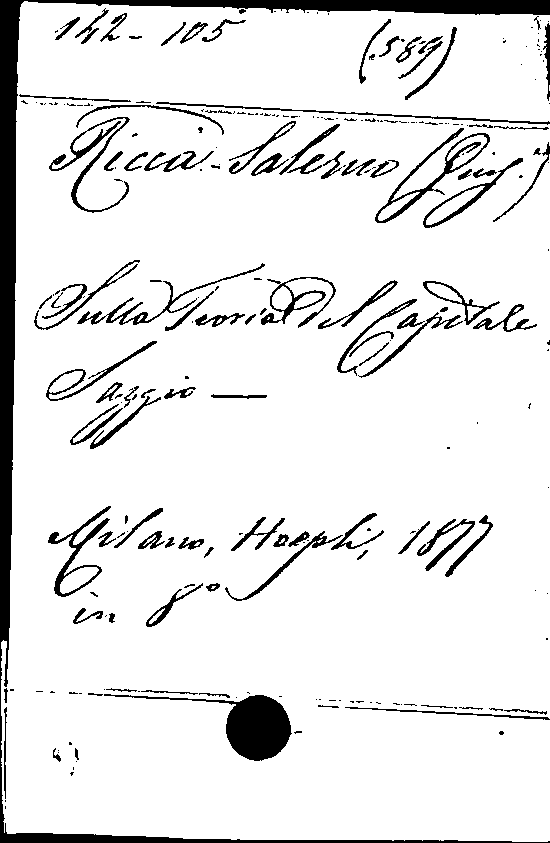 142-105 (589)
Ricca-Salerno (Giu.)
Sulla Teoria del Capitale
Saggio —
Milano, Hoepli, 1877
in 8º